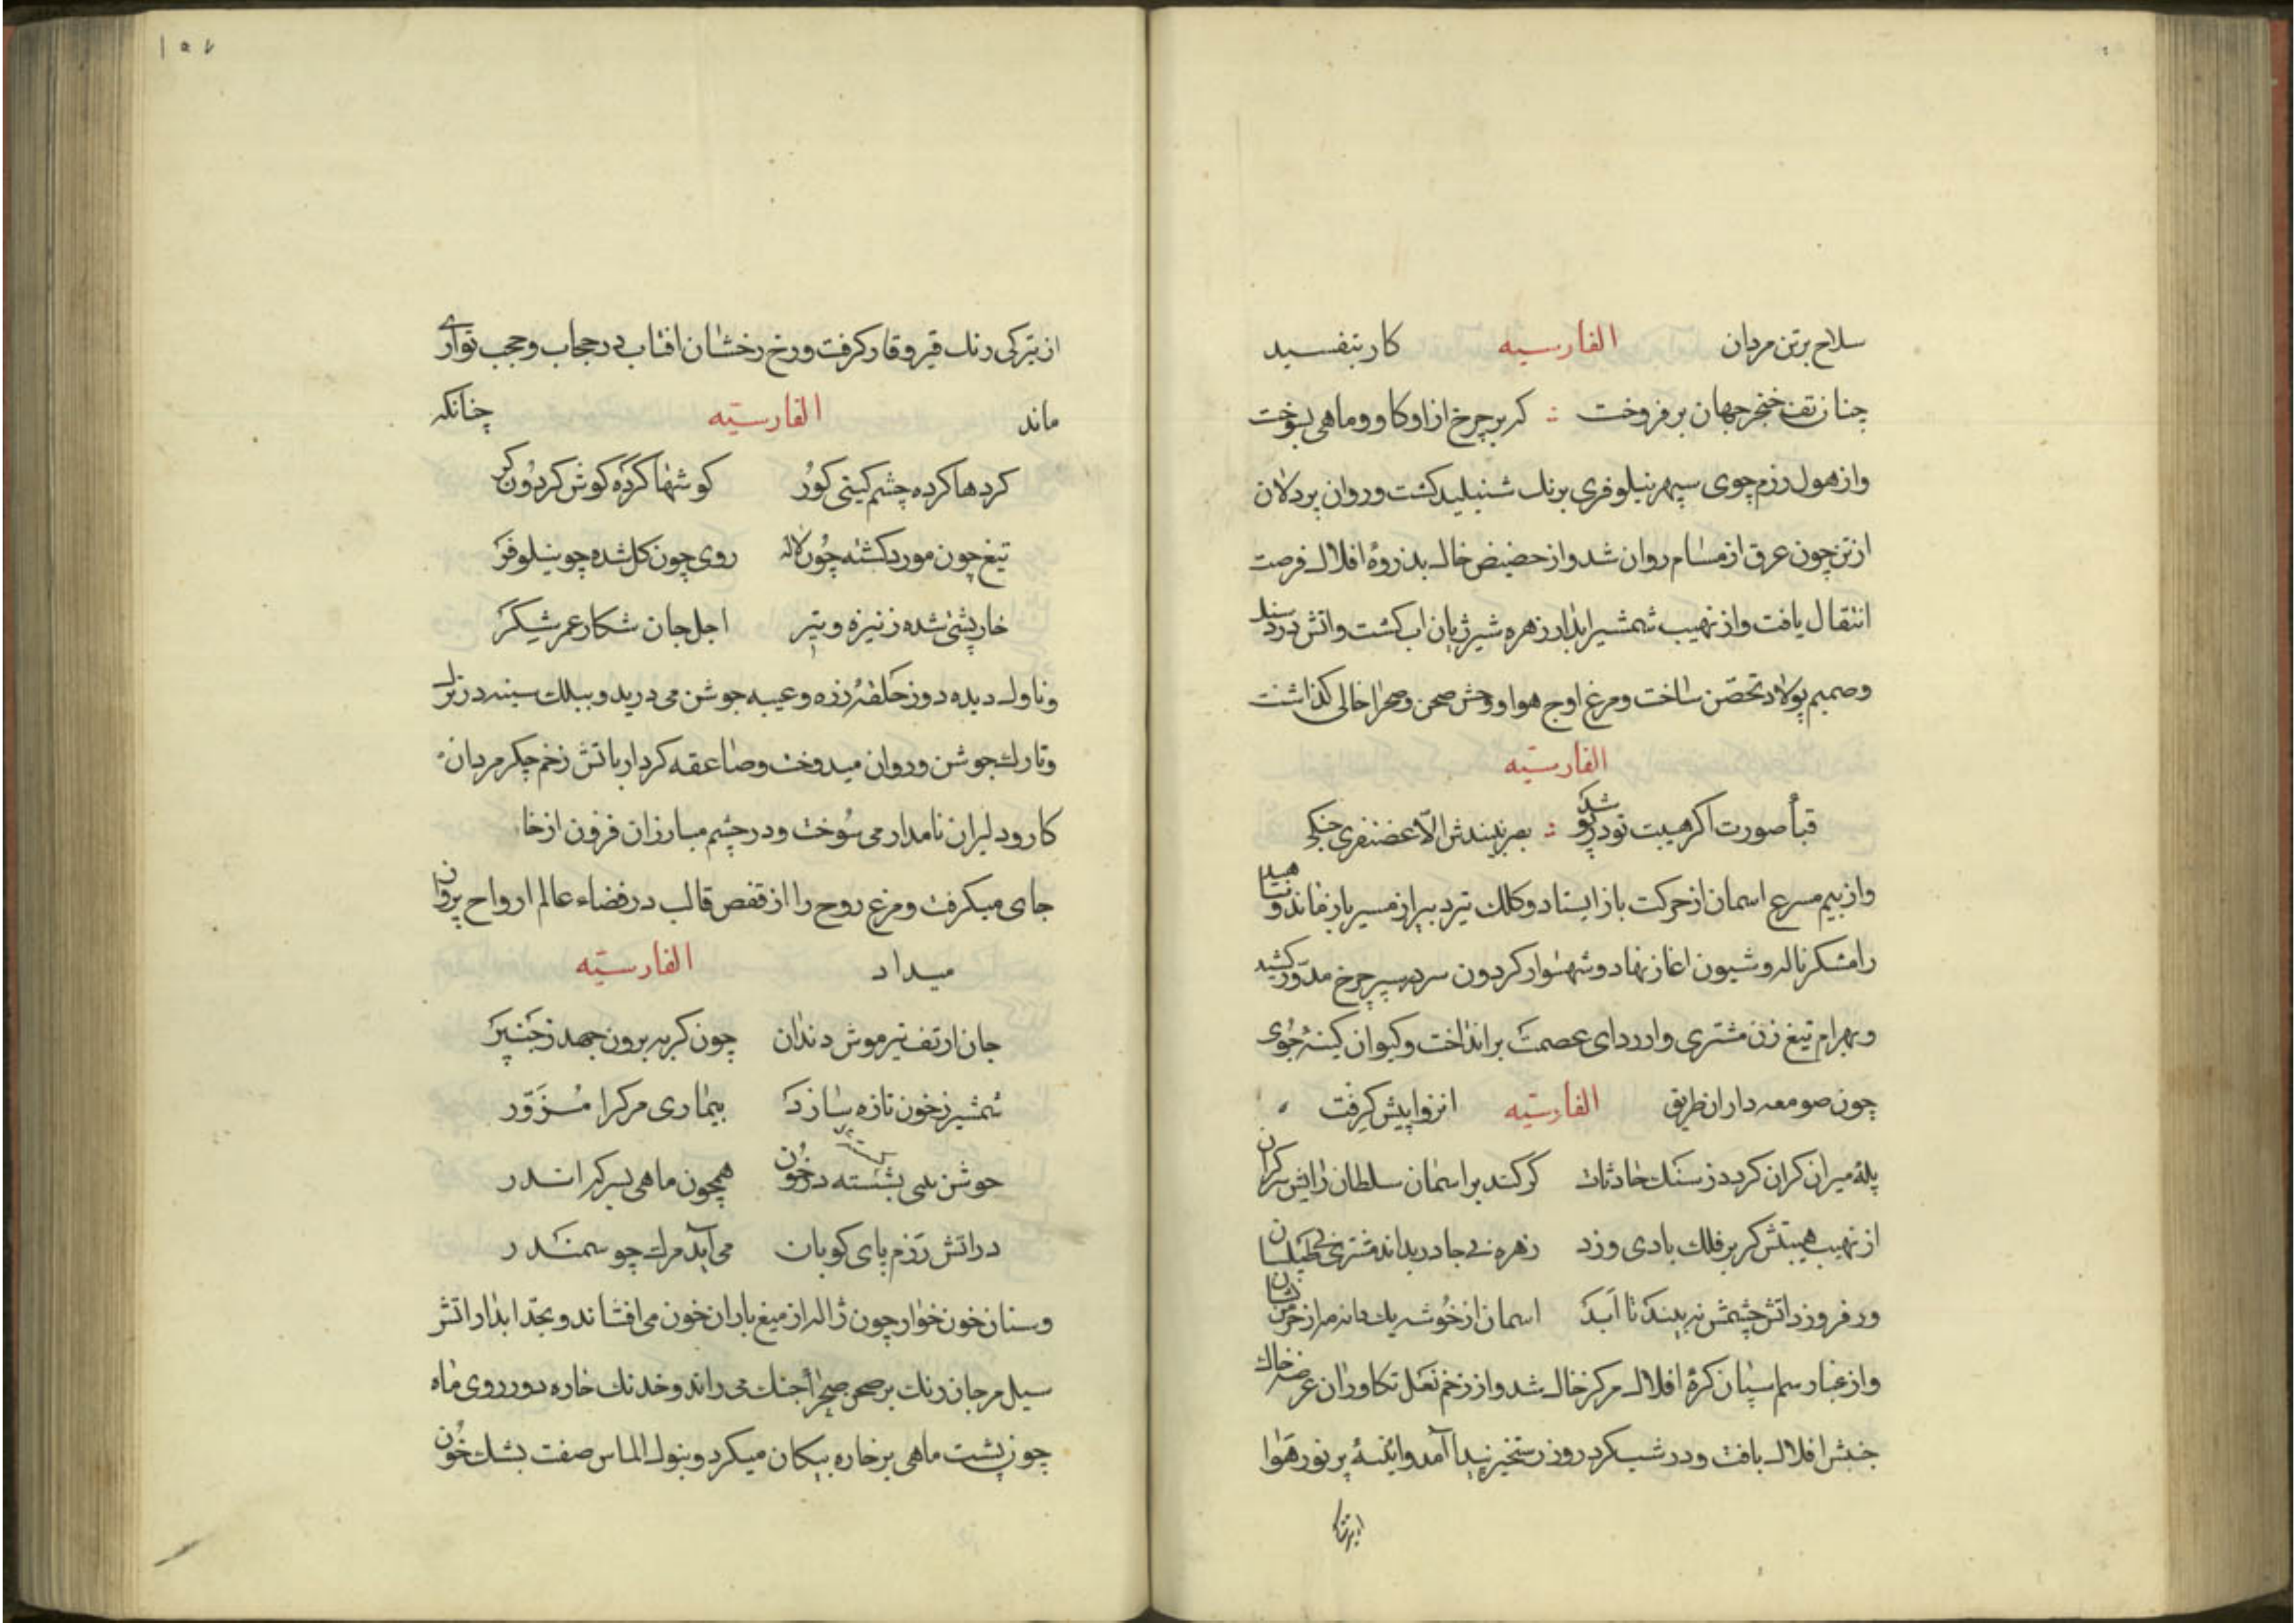 سلاح برتن مردان الفارسیه کار بتفسید
چنان زتف خنجر جهان برفروخت کر بر چرخ ازاو کاو و ماهی بسوخت
واز هول رزم جوی سپهر نیلوفری برنك شنبلید کشت و روان پر دلان
از تن چون عرق از مسام روان شد و از حضیض خاك بذروهٔ افلاك فرصت
انتقال یافت و از نهیب شمشیر ابدار زهره شیر ژیان اب کشت و اتش در دل سنك
وصمیم پولاد تحصّن ساخت ومرغ اوج هوا و وحش صحن وصحرا خالی کذاشت
الفارسیّه
قبأ صورت اکر هیبت تو در پو شد بصر نبیندش الّا غضنفری جنکی
واز بیم مسرع اسمان از حرکت باز ایستاد و کلك تیر دبیر از مسیر باز ماند و ناهید
رامشکر ناله و شیون اغاز نهاد و شهسوار کردون سر در سپر چرخ مدوّر کشید
و بهرام تیغ زن مشتری وار ردای عصمت برانداخت وکیوان کینه جوی
چون صومعه داران طریق الفارسیّه انزوا پیش کرفت
پلهٔ میزان کران کردد ز سنك حادثات کر کند بر اسمان سلطان رایش سر کران
از نهیب هیبتش کر بر فلك بادی وزد زهره بی چادر بماند مشتری بی طیلسان
ور فروزد اتش چشمش نه بیند تا ابد اسمان از خوشه یك دانه مر از خرمن نشان
واز غبار سم اسپان کرهٔ افلاك مرکز خاك شد و از زخم نعل تکاوران عرصه خاك
جنبش افلاك یافت و در شب کرد روز رستخیز پیدا آمد وائینهٔ پر نور هوا
از تیرکی
از تیرکی رنك قیر و قار کرفت و رخ رخشان افتاب در حجاب و حجب تواری
ماند الفارسیّه چنانکه
کردها کرده چشم کیتی کور کوشها کرده کوش کردون کر
تیغ چون مورد کشته چون لاله روی چون کل شده چو نیلوفر
خارپشتی شده ز نیزه و تیر اجل جان شکار عمر شکر
و ناوك دیده دوز حلقهٔ زره و عیبه جوشن می درید و ببیلك سینه در ترك
و تارك جوشن و روان میدوخت وصاعقه کردار باتش زخم جکر مردان
کار و دلیران نامدار می سوخت و در چشم مبارزان فزون از خا
جای میکرفت و مرغ روح را از قفص قالب در فضاء عالم ارواح پروان
میداد الفارسیّه
جان از تف تیر موش دندان چون کربه برون جهد ز چنبر
شمشیر ز خون تازه سازد بیماری مرك را مزوّر
جوشن بسی بشسته در خون همچون ماهی بسرکه اندر
در اتش رزم پای کوبان می آید مرك چو سمندر
و سنان خون خوار چون ژاله از میغ باران خون می افشاند و بحدّ ابدار اتش
سیل مرجان رنك بر صحن صحرا جنك می راند و خدنك خاره دوز روی ماه
چون پشت ماهی بر خاره پیکان میکرد و بنوك الماس صفت بشك خون